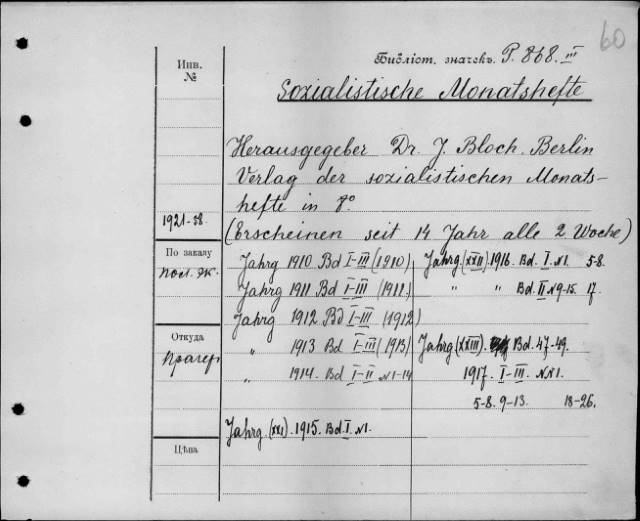 60
Библіот. значекъ. P. 868. III
Инв. №
Sozialistische Monatshefte
Herausgegeber Dr. J. Bloch. Berlin
Verlag der sozialistischen Monats-
hefte in 8°
1921-38.
(Erscheinen seit 14 Jahr alle 2 Woche)
По заказу
пол. эк.
Jahrg 1910 Bd I-III (1910)
Jahrg 1911 Bd I-III (1911)
Jahrg 1912 Bd I-III (1912)
" 1913 Bd I-III (1913)
" 1914. Bd I-II N1-14
Jahrg. (XXI). 1915. Bd. I. N1.
Jahrg. (XXII) 1916. Bd. I. N1. 5-8.
" " Bd. II N9-15. 17.
Jahrg (XXIII). Bd. 47-49.
1917. I-III. NN1.
5-8. 9-13. 18-26.
Откуда
Прагер
Цѣна